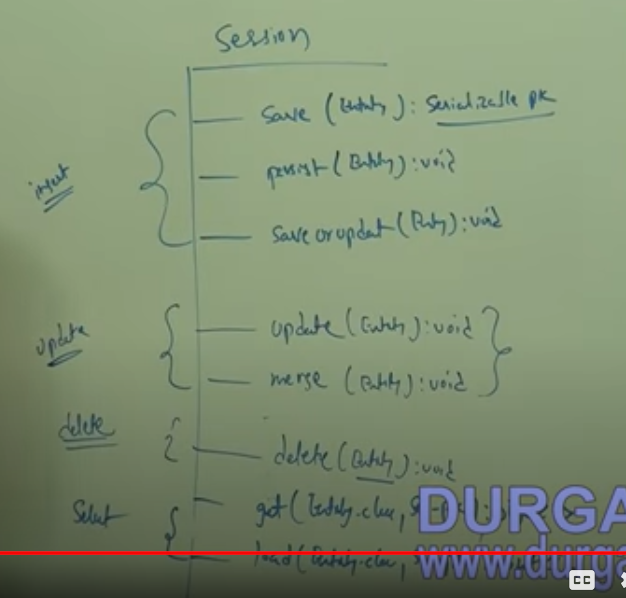 Session
insert
save (Entity) : Serializable pk
persist (Entity) : void
save or updat (Entity) : void
update
update (Entity) : void
merge (Entity) : void
delete
delete (Entity) : void
Select
get (Entity-class,
load (Entity-class,
DURGA
www.durga
CC